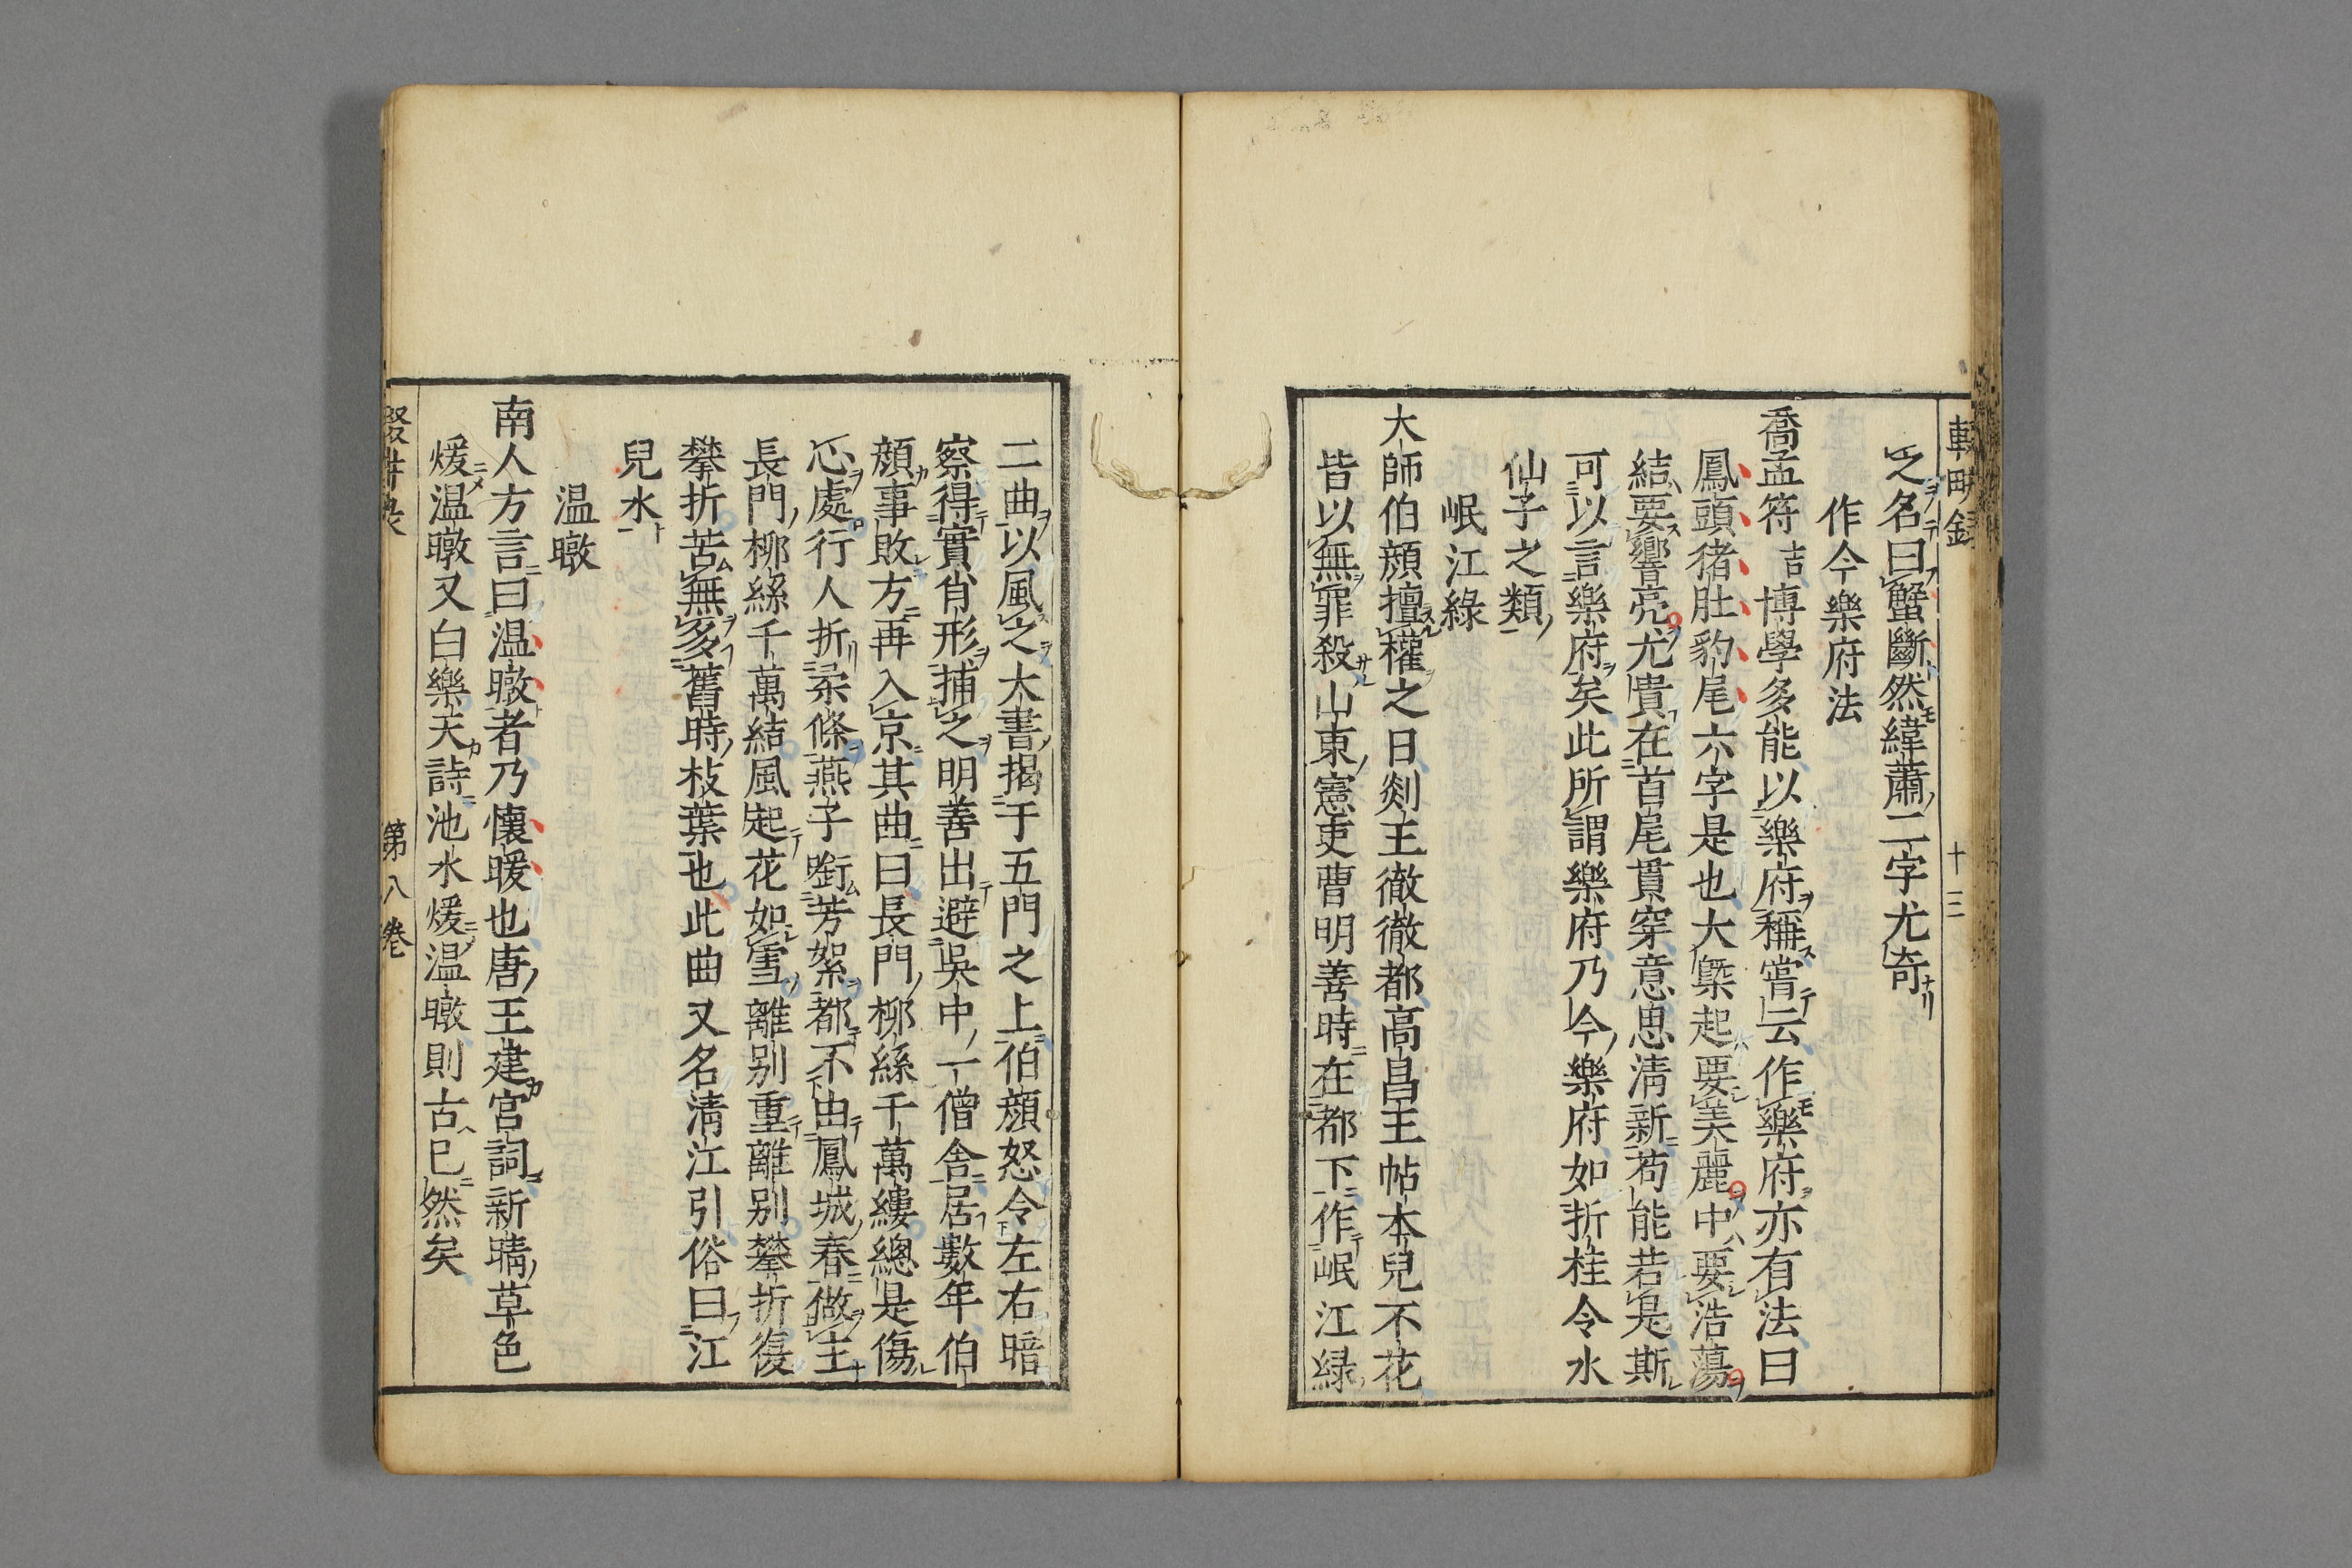 輟畊録
十三
之名曰蟹斷然緯蕭二字尤奇
作今樂府法
喬孟符吉博學多能以樂府稱嘗云作樂府亦有法曰
鳳頭猪肚豹尾六字是也大槩起要美麗中要浩蕩
結要響亮尤貴在首尾貫穿意思清新苟能若是斯
可以言樂府矣此所謂樂府乃今樂府如折桂令水
仙子之類
岷江綠
大師伯顔擅權之日剡王徹徹都高昌王帖木兒不花
皆以無罪殺山東憲吏曹明善時在都下作岷江緑
二曲以風之大書揭于五門之上伯顔怒令左右暗
察得實肖形捕之明善出避吳中一僧舍居數年伯
顔事敗方再入京其曲曰長門柳絲千萬縷總是傷
心處行人折柔條燕子銜芳絮都不由鳳城春做主
長門柳絲千萬結風起花如雪離别重離别攀折復
攀折苦無多舊時枝葉也此曲又名清江引俗曰江
兒水
温暾
南人方言曰温暾者乃懷暖也唐王建宮詞新晴草色
煖温暾又白樂天詩池水煖温暾則古已然矣
輟畊录
第八卷